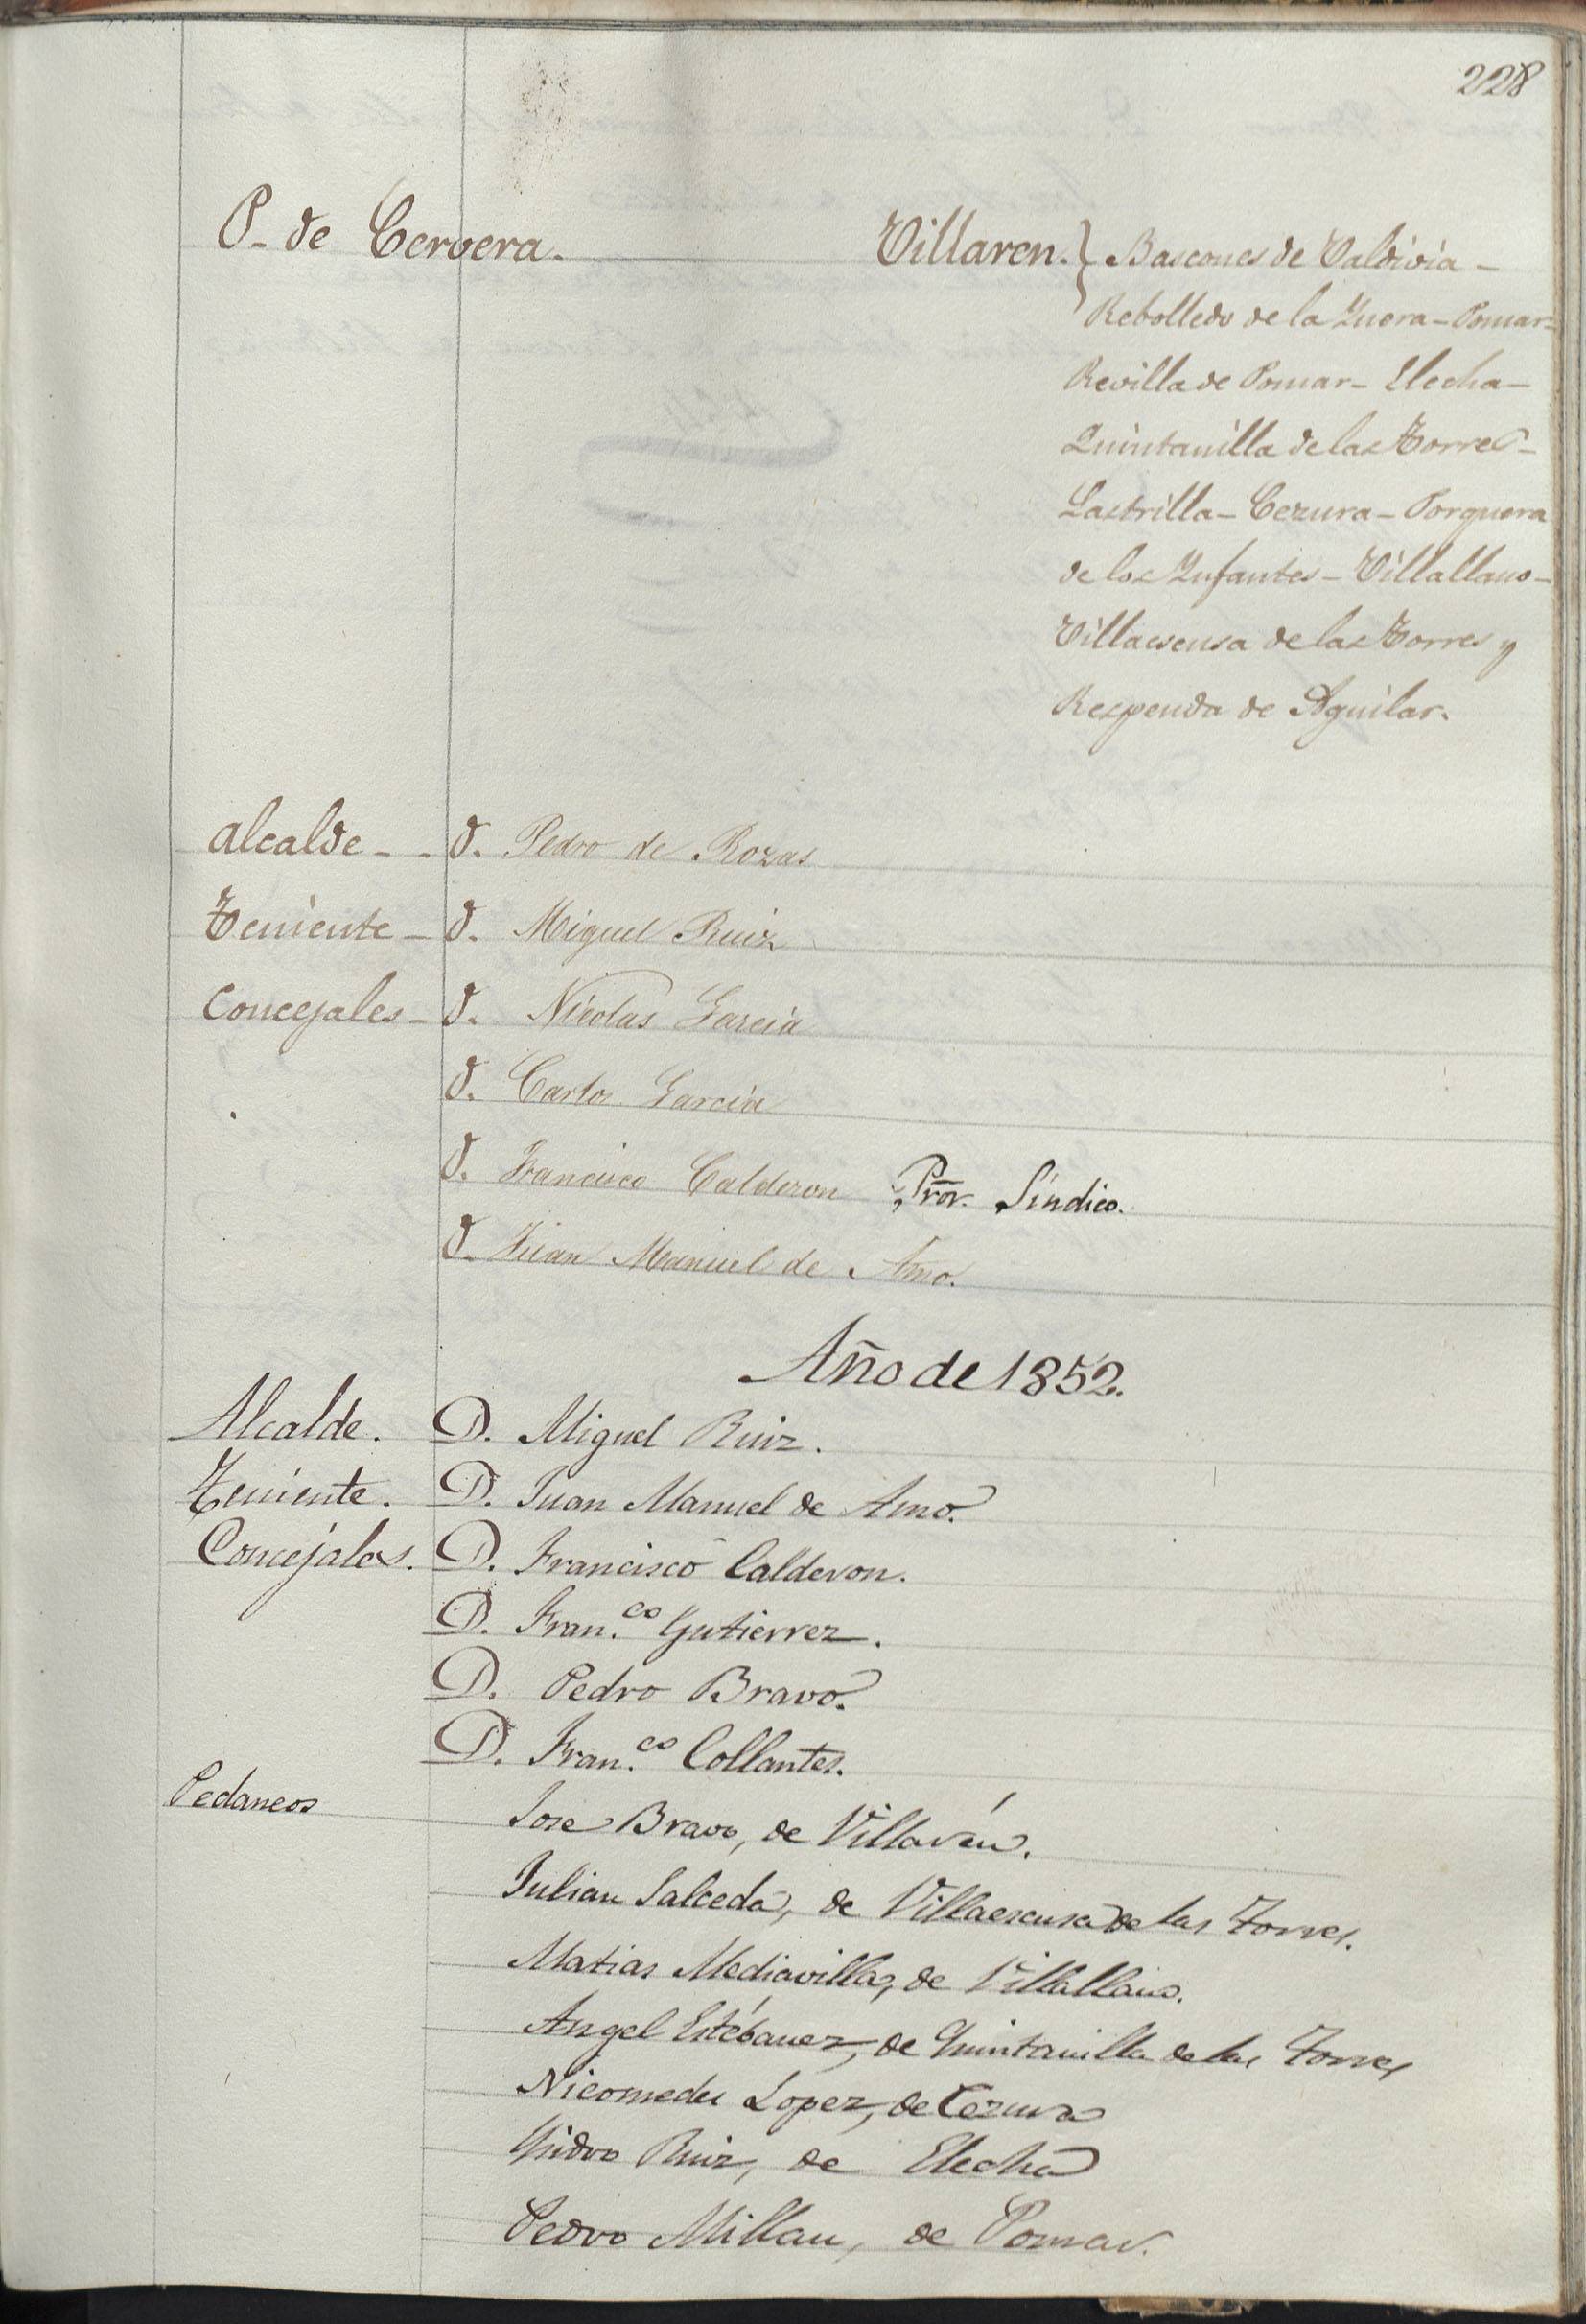 228
P. de Cervera. Villaren. } Bascones de Valdivia -
Rebolledo de la Ynera - Pomar -
Revilla de Pomar - Elecha -
Quintanilla de las Torres -
Lastrilla - Cezura - Porquera
de los Ynfantes - Villallano -
Villaescusa de las Torres y
Respenda de Aguilar.
Alcalde - - D. Pedro de Rozas
Teniente - D. Miguel Ruiz
Concejales - D. Nicolas Garcia
D. Carlos Garcia
D. Francisco Calderon Pror. Síndico.
D. Juan Manuel de Amo.
Año de 1852.
Alcalde. D. Miguel Ruiz.
Teniente. D. Juan Manuel de Amo.
Concejales. D. Francisco Calderon.
D. Fran.co Gutierrez.
D. Pedro Bravo.
D. Fran.co Collantes.
Pedaneos
Jose Bravo, de Villarén.
Julian Salceda, de Villaescusa de las Torres.
Matias Mediavilla, de Villallano.
Angel Estébanez, de Quintanilla de las Torres
Nicomedes Lopez, de Cezura
Ysidro Ruiz, de Elecha
Pedro Millan, de Pomar.